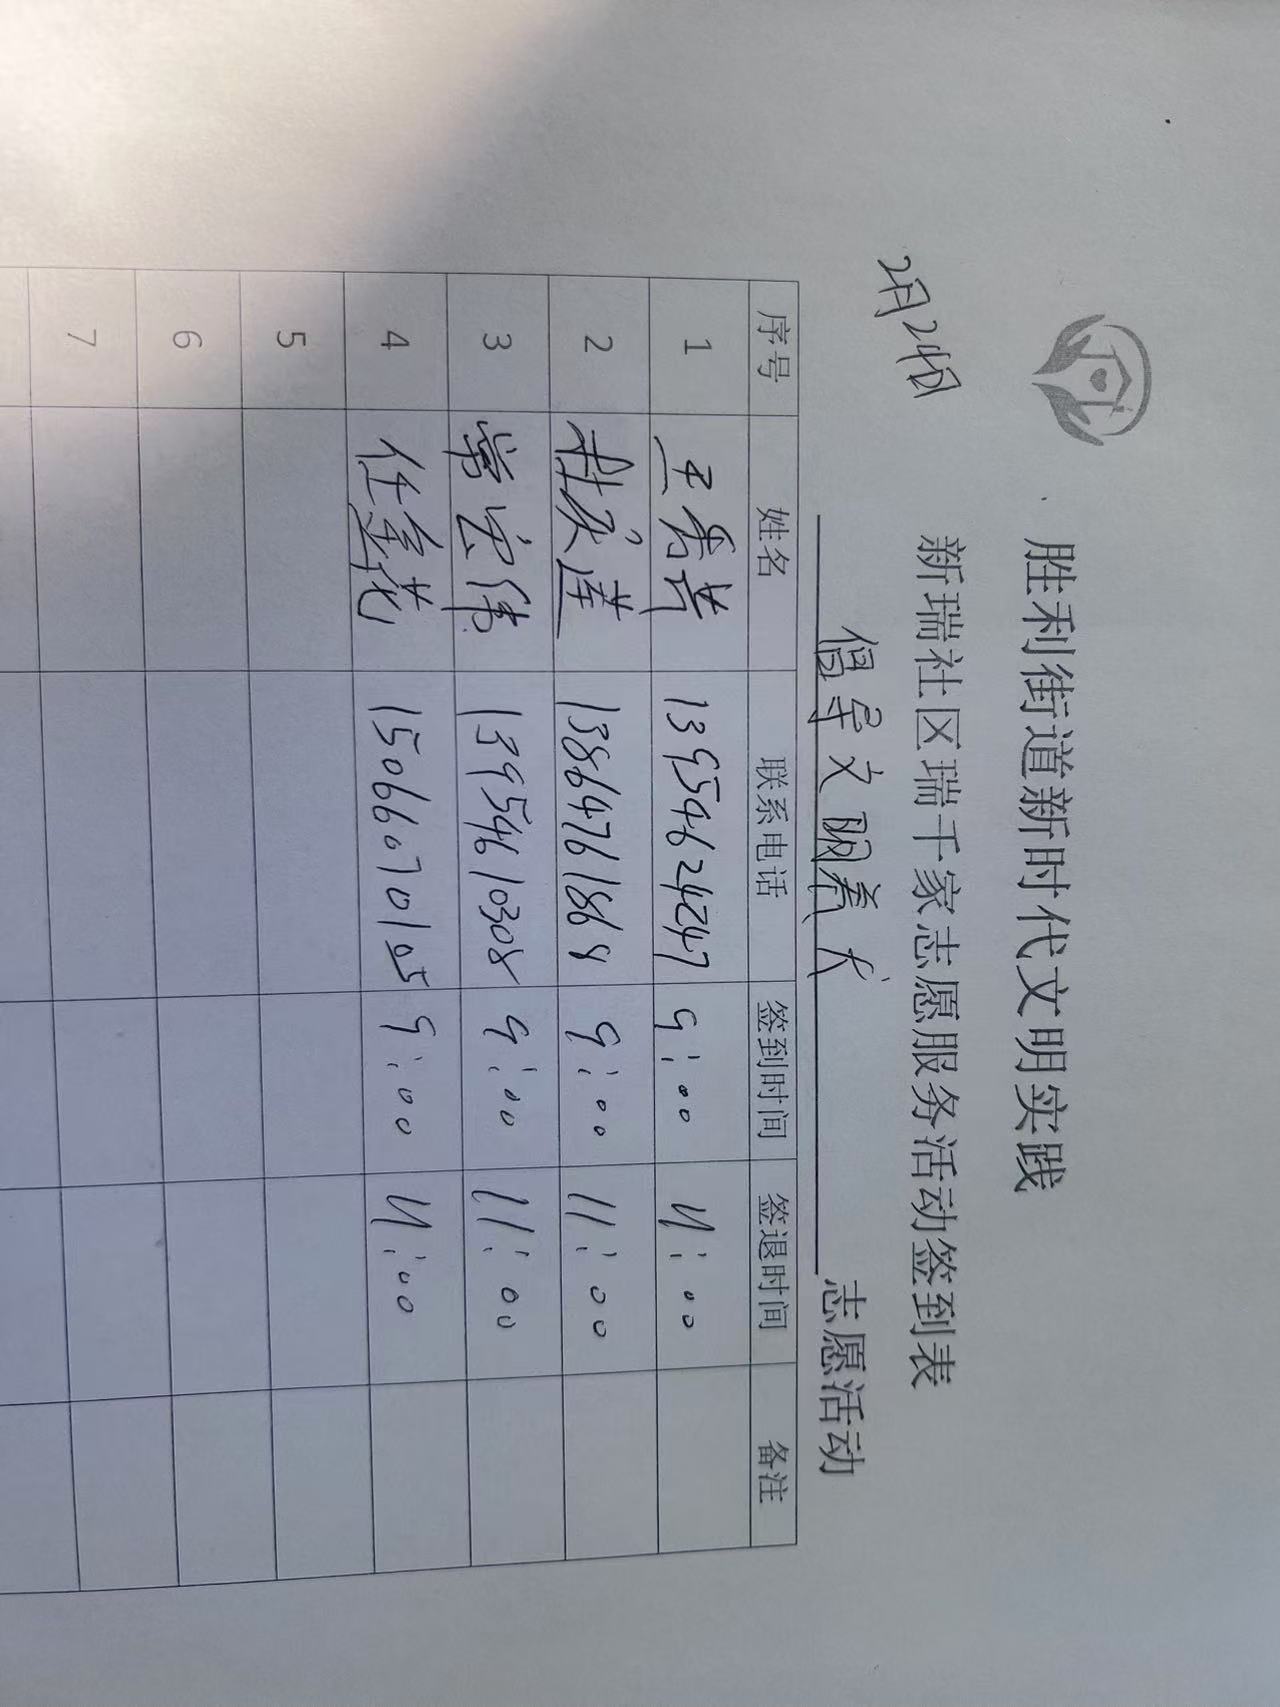 胜利街道新时代文明实践
新瑞社区瑞千家志愿服务活动签到表
2月24日 倡导文明养犬 志愿活动
序号 姓名 联系电话 签到时间 签退时间 备注
1 王秀芳 13954624247 9:00 11:00
2 杜庆莲 13864761868 9:00 11:00
3 常宏伟 13954610308 9:00 11:00
4 任金花 15066070105 9:00 11:00
5
6
7